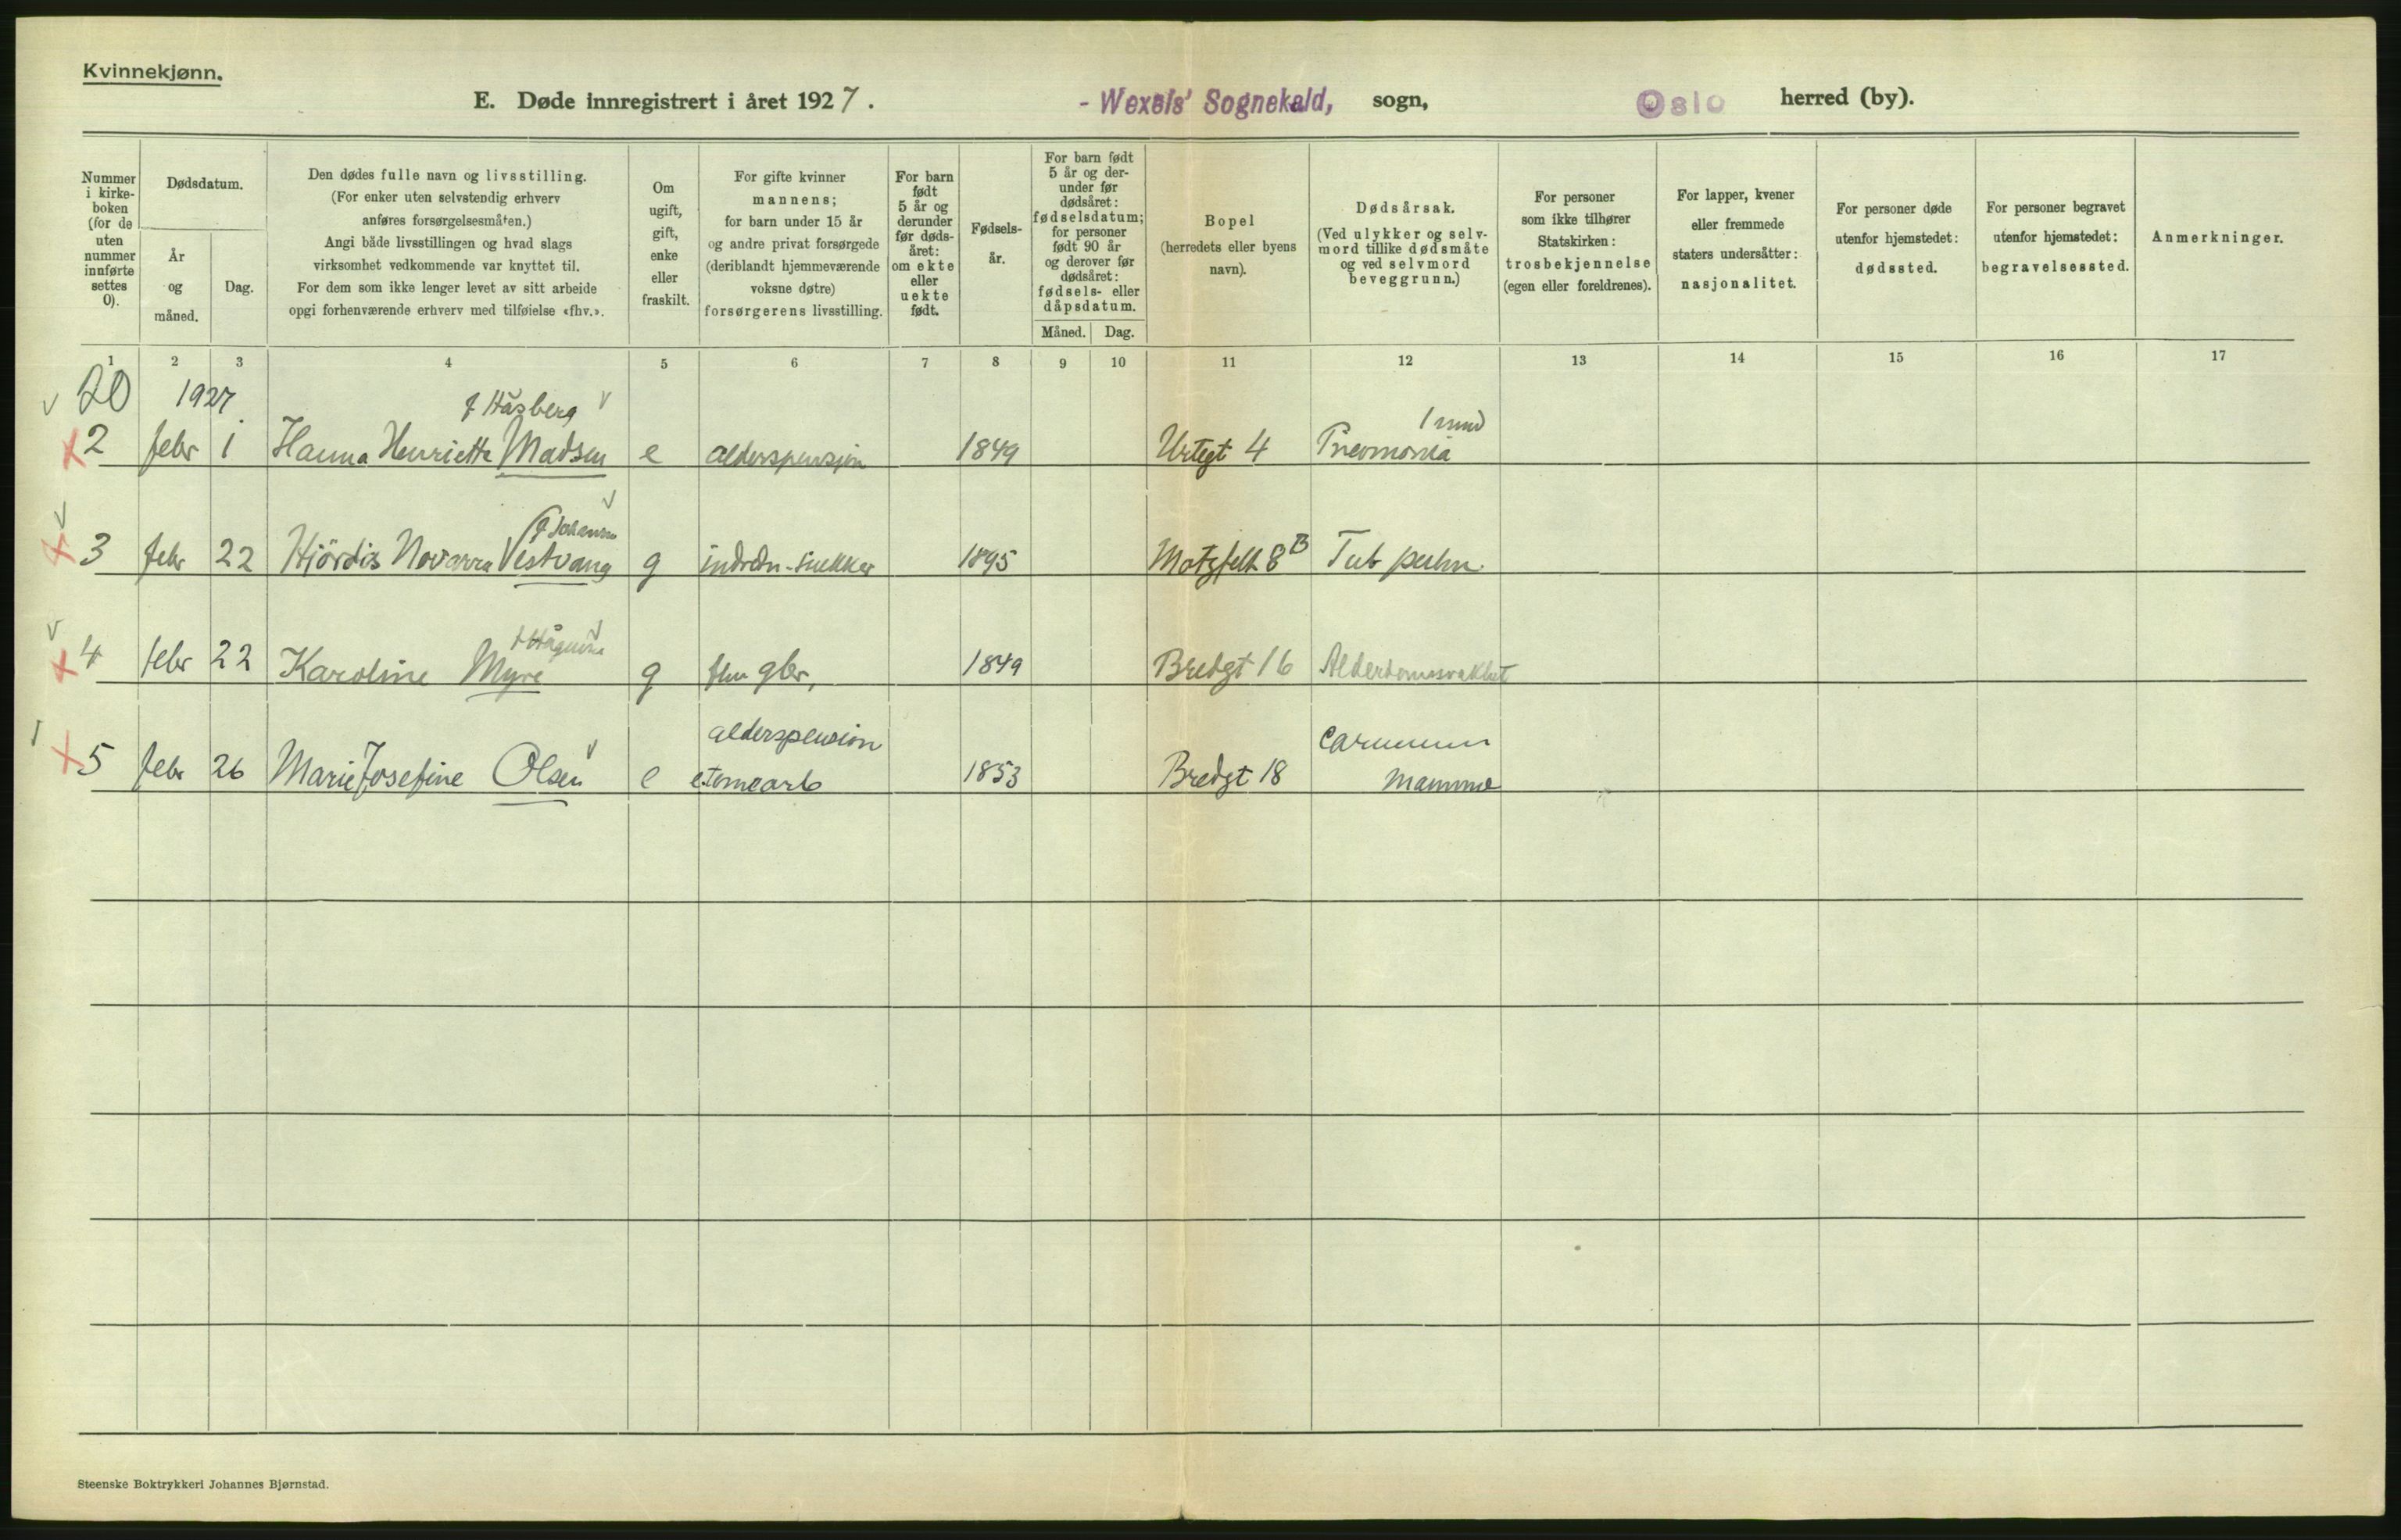 Kvinnekjønn.
E. Døde innregistrert i året 1927. - Wexels' Sognekald, sogn, Oslo herred (by).
Nummer i kirke-boken (for de uten nummer innførte settes 0).
Dødsdatum.
År og måned.
Dag.
Den dødes fulle navn og livsstilling.
(For enker uten selvstendig erhverv
anføres forsørgelsesmåten.)
Angi både livsstillingen og hvad slags
virksomhet vedkommende var knyttet til.
For dem som ikke lenger levet av sitt arbeide
opgi forhenværende erhverv med tilføielse «fhv.».
Om ugift, gift, enke eller fraskilt.
For gifte kvinner
mannens;
for barn under 15 år
og andre privat forsørgede
(deriblandt hjemmeværende
voksne døtre)
forsørgerens livsstilling.
For barn født 5 år og derunder før døds-året: om ekte eller uekte født.
Fødsels-år.
For barn født 5 år og der-under før dødsåret: fødselsdatum; for personer født 90 år og derover før dødsåret: fødsels- eller dåpsdatum.
Måned. Dag.
Bopel
(herredets eller byens
navn).
Dødsårsak.
(Ved ulykker og selv-
mord tillike dødsmåte
og ved selvmord
beveggrunn.)
For personer
som ikke tilhører
Statskirken:
trosbekjennelse
(egen eller foreldrenes).
For lapper, kvener
eller fremmede
staters undersåtter:
nasjonalitet.
For personer døde
utenfor hjemstedet:
dødssted.
For personer begravet
utenfor hjemstedet:
begravelsessted.
Anmerkninger.
1 2 3 4 5 6 7 8 9 10 11 12 13 14 15 16 17
20 1927
f Håsberg
2 febr 1 Hanna Henriette Madsen e alderspensjon 1849 Urtegt 4 Pneumonia
3 febr 22 Hjördis Novarra Vestvang g snekker 1895 Motzfelt 8 B Tub pulm.
4 febr 22 Karoline Myre g 1849 Bredgt 16 Alderdomssvakhet
alderspension
5 febr 26 Marie Josefine Olsen e 1853 Bredgt 18 mammae
Steenske Boktrykkeri Johannes Bjørnstad.